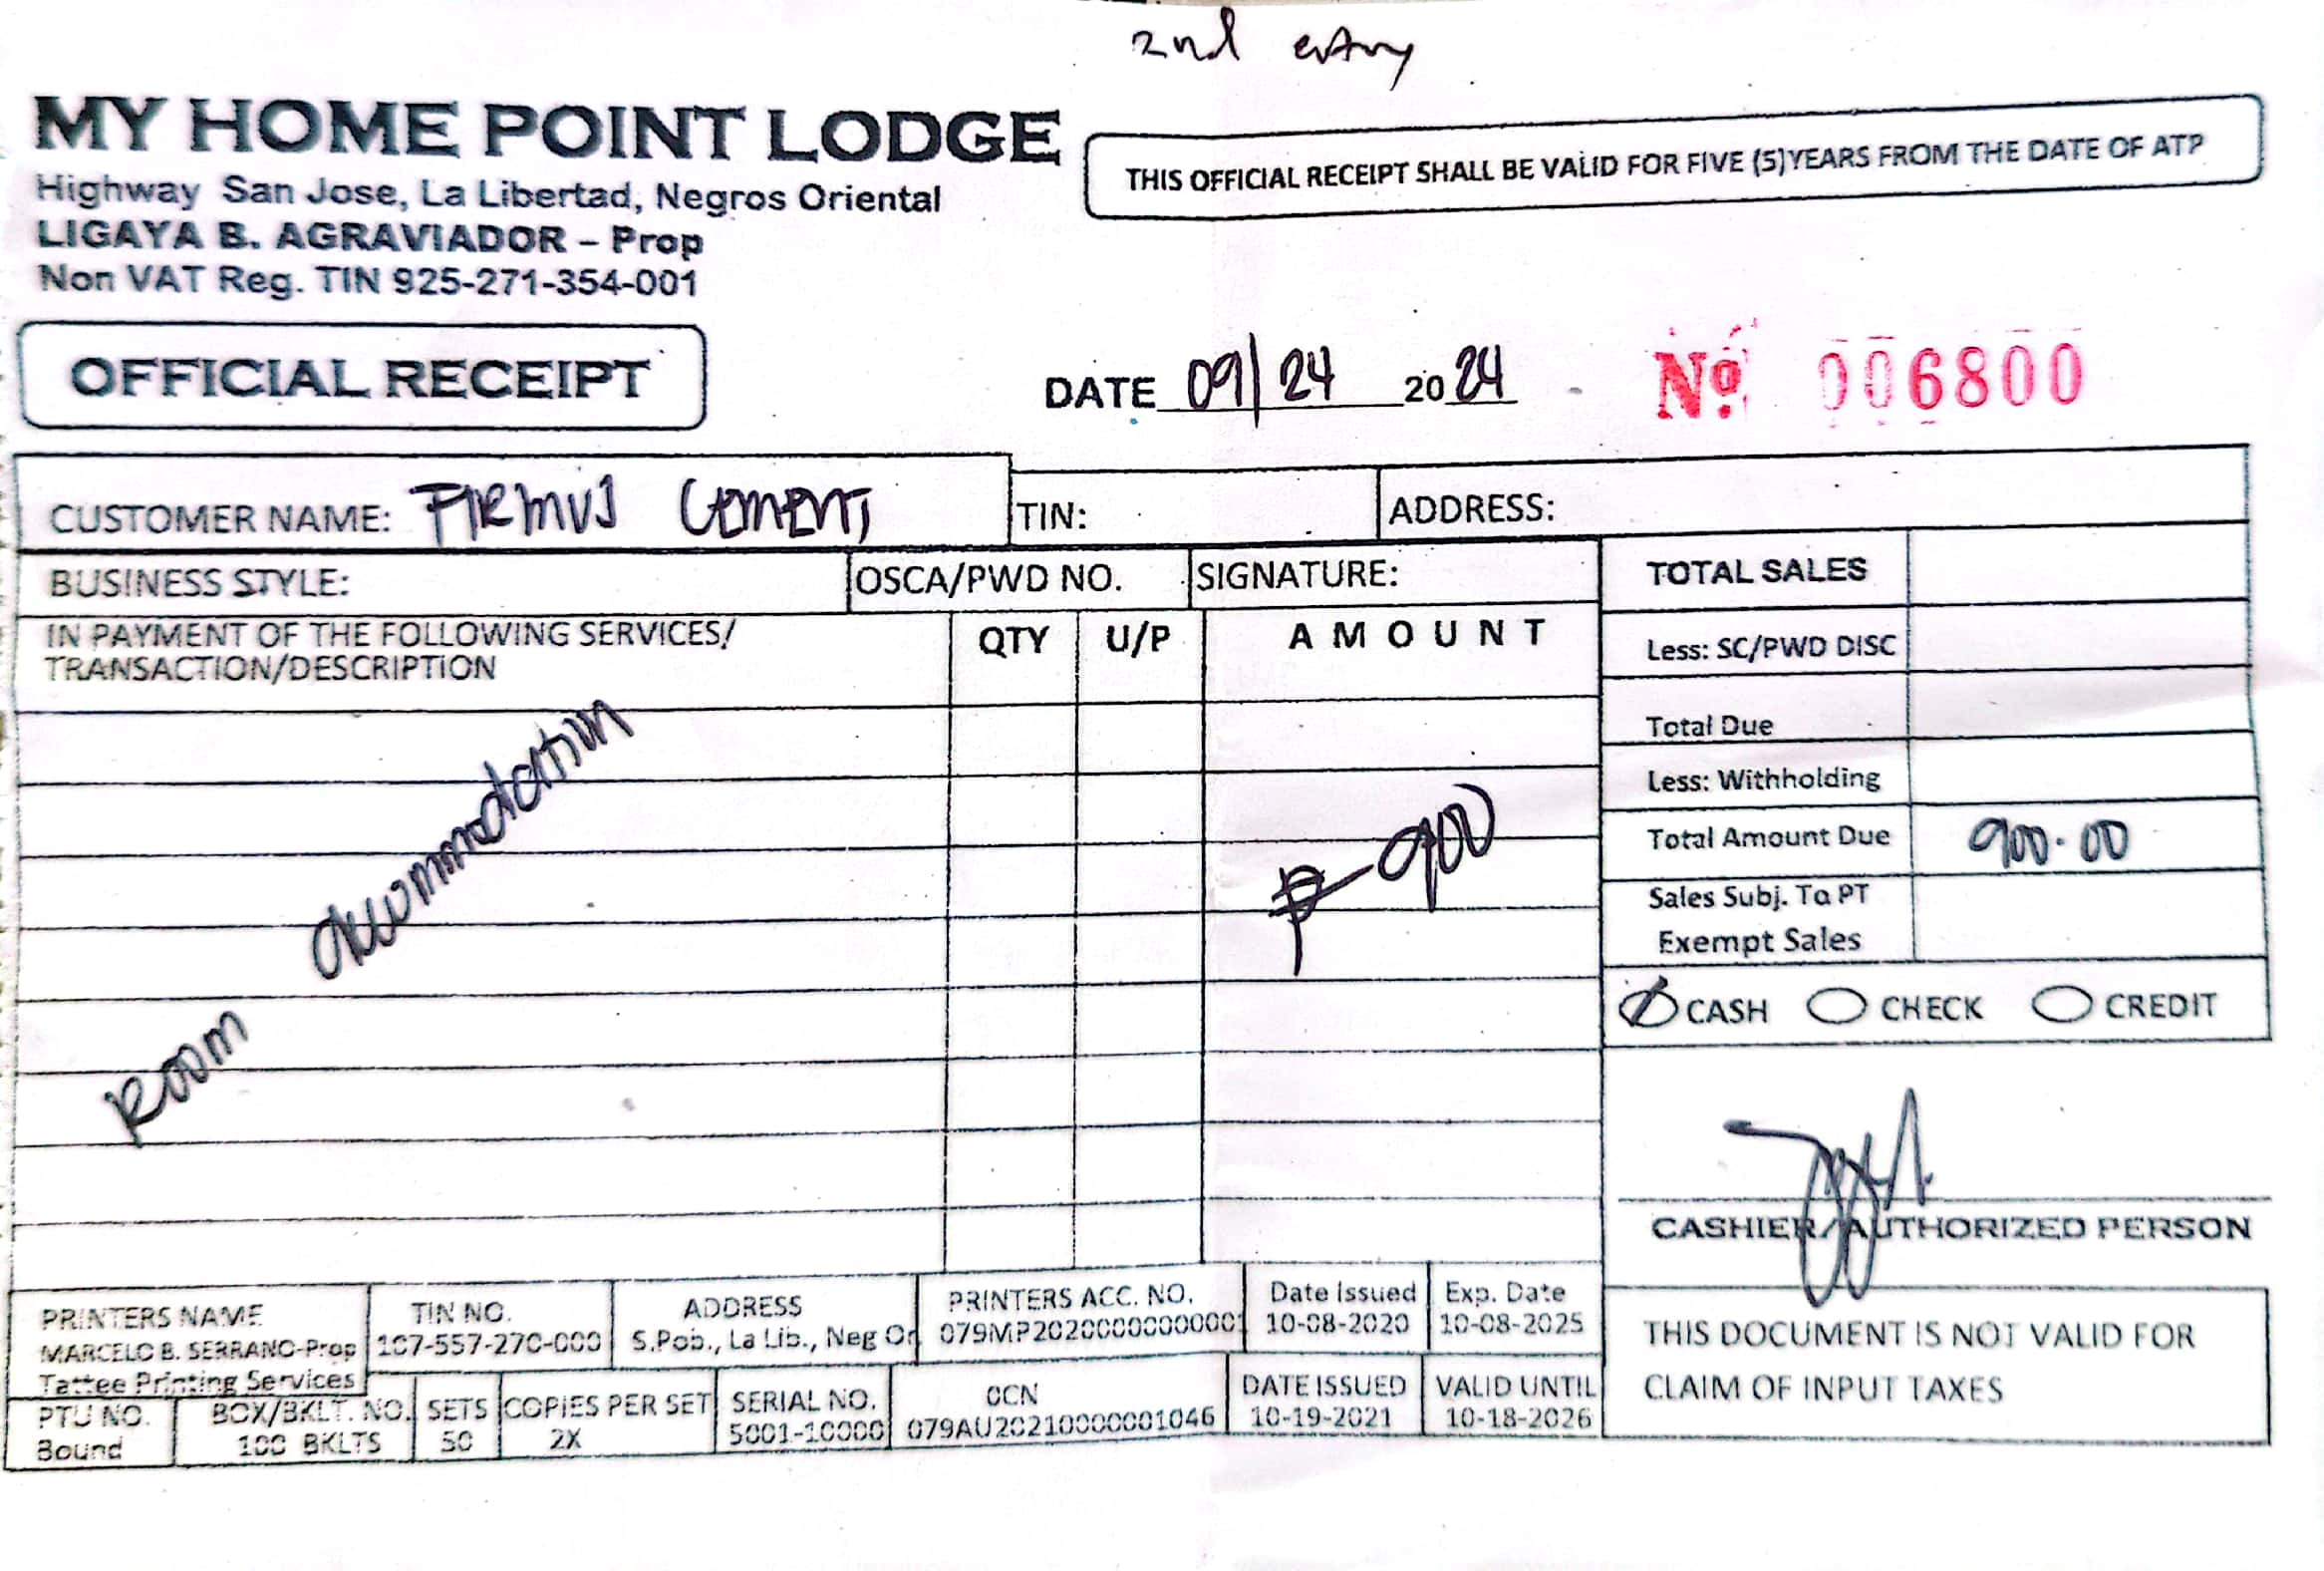 2nd entry
MY HOME POINT LODGE
Highway San Jose, La Libertad, Negros Oriental
LIGAYA B. AGRAVIADOR – Prop
Non VAT Reg. TIN 925-271-354-001
THIS OFFICIAL RECEIPT SHALL BE VALID FOR FIVE (5)YEARS FROM THE DATE OF ATP
OFFICIAL RECEIPT
DATE 09/24 2024
Nº 006800
CUSTOMER NAME: FIRMUS CEMENT
TIN:
ADDRESS:
BUSINESS STYLE:
OSCA/PWD NO.
SIGNATURE:
IN PAYMENT OF THE FOLLOWING SERVICES/
TRANSACTION/DESCRIPTION
QTY
U/P
AMOUNT
Room accommodation
₱ 900
TOTAL SALES
Less: SC/PWD DISC
Total Due
Less: Withholding
Total Amount Due 900.00
Sales Subj. To PT
Exempt Sales
CASH CHECK CREDIT
CASHIER/AUTHORIZED PERSON
PRINTERS NAME
MARCELO B. SERRANO-Prop
Tattee Printing Services
TIN NO.
107-557-270-000
ADDRESS
S.Pob., La Lib., Neg Or
PRINTERS ACC. NO.
079MP20200000000001
Date Issued
10-08-2020
Exp. Date
10-08-2025
PTU NO.
Bound
BOX/BKLT. NO.
100 BKLTS
SETS
50
COPIES PER SET
2X
SERIAL NO.
5001-10000
OCN
079AU20210000001046
DATE ISSUED
10-19-2021
VALID UNTIL
10-18-2026
THIS DOCUMENT IS NOT VALID FOR
CLAIM OF INPUT TAXES